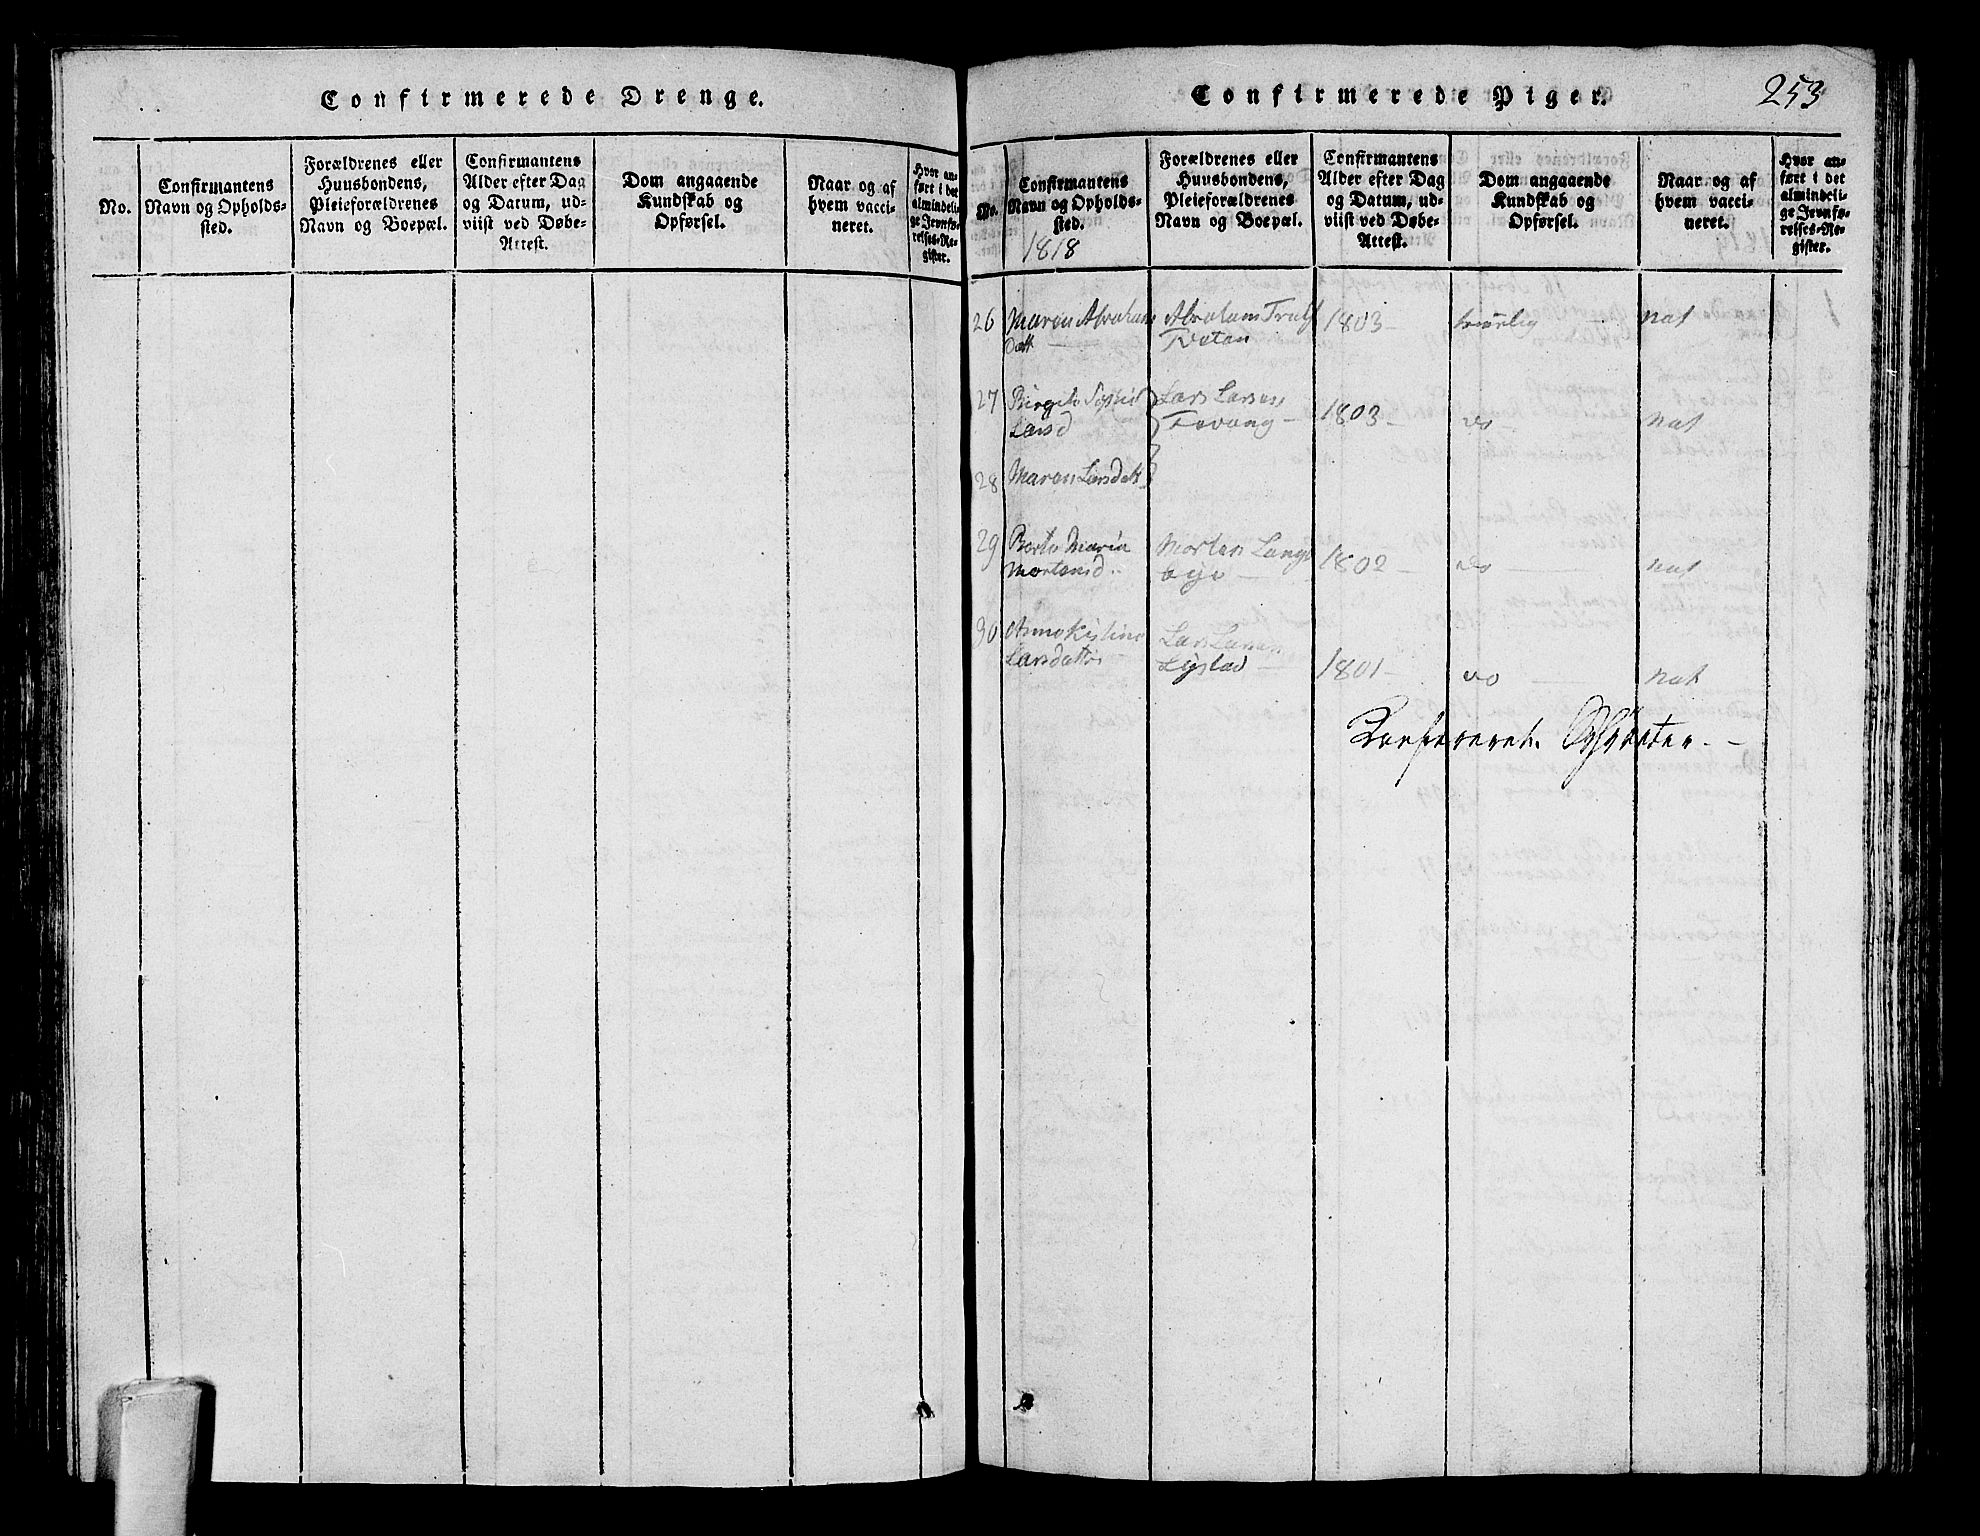 Confirmerede Drenge.
No.
Confirmantens
Navn og Opholds-
sted.
Forældrenes eller
Huusbondens,
Pleieforældrenes
Navn og Boepæl.
Confirmantens
Alder efter Dag
og Datum, ud-
viist ved Døbe-
Attest.
Dom angaaende
Kundskab og
Opførsel.
Naar og af
hvem vacci-
neret.
Hvor an-
ført i det
almindeli-
ge Jevnfø-
relses-Re-
gister.
Confirmerede Piger.
253
No.
Confirmantens
Navn og Opholds-
sted.
1818
Forældrenes eller
Huusbondens,
Pleieforældrenes
Navn og Boepæl.
Confirmantens
Alder efter Dag
og Datum, ud-
viist ved Døbe-
Attest.
Dom angaaende
Kundskab og
Opførsel.
Naar og af
hvem vacci-
neret.
Hvor an-
ført i det
almindeli-
ge Jevnfø-
relses-Re-
gister.
26 Maren Abrahams Abraham 1803 - nat
Datt
27 Lars Larsen 1803 - do nat
Larsd
28 Maren Larsdatt
29 Berte Maria Morten Lang 1802 - do nat
Mortensd. bye
30 Anne Kistine Lars Larsen
Larsdatter 1801 - do nat